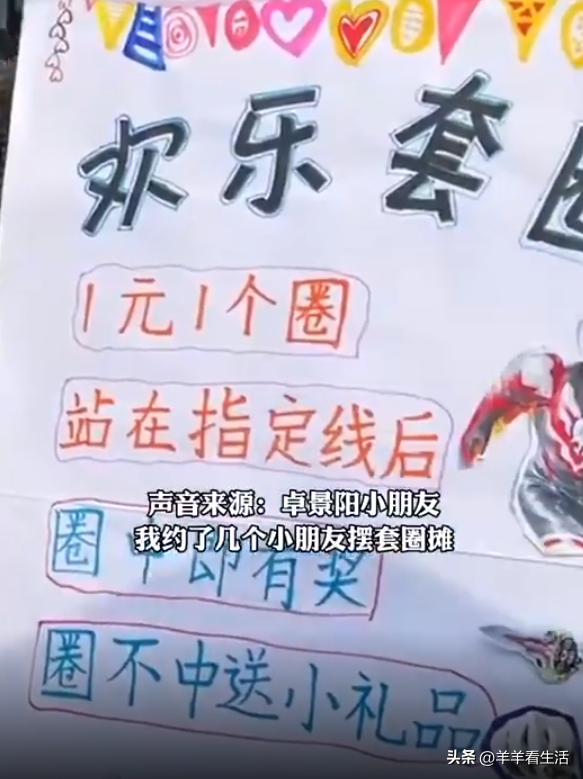 欢乐套圈
1元1个圈
站在指定线后
声音来源：卓景阳小朋友
我约了几个小朋友摆套圈摊
圈中即有奖
圈不中送小礼品
头条 @羊羊看生活